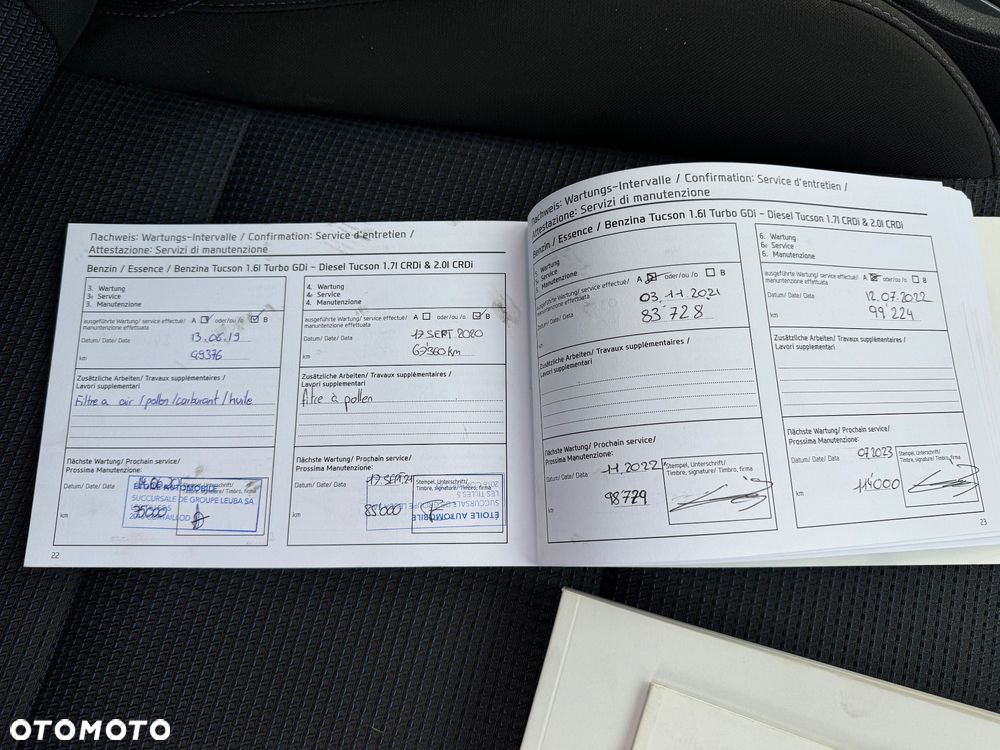 Nachweis: Wartungs-Intervalle / Confirmation: Service d'entretien /
Attestazione: Servizi di manutenzione
Benzin / Essence / Benzina Tucson 1.6l Turbo GDi – Diesel Tucson 1.7l CRDi & 2.0l CRDi
3. Wartung
3e Service
3. Manutenzione
ausgeführte Wartung/ service effectué/ A oder/ou/o B
manuntenzione effettuata
Datum/ Date/ Data 13.06.19
km 49376
Zusätzliche Arbeiten/ Travaux supplémentaires /
Lavori supplementari
Filtre a air / pollen / carburant / huile
Nächste Wartung/ Prochain service/
Prossima Manutenzione:
Datum/ Date/ Data
Stempel, Unterschrift/
Timbre, signature/ Timbro, firma
AUTOMOBILE
SUCCURSALE DE GROUPE LEUBA SA
km
22
4. Wartung
4e Service
4. Manutenzione
ausgeführte Wartung/ service effectué/ A oder/ou/o B
manuntenzione effettuata
Datum/ Date/ Data 17 SEPT 2020
km
Zusätzliche Arbeiten/ Travaux supplémentaires /
Lavori supplementari
à pollen
Nächste Wartung/ Prochain service/
Prossima Manutenzione:
Datum/ Date/ Data 17.SEPT.21
Stempel, Unterschrift/
Timbre, signature/ Timbro, firma
km 88'000
ÉTOILE AUTOMOBILE
Nachweis: Wartungs-Intervalle / Confirmation: Service d'entretien /
Attestazione: Servizi di manutenzione
Benzin / Essence / Benzina Tucson 1.6l Turbo GDi – Diesel Tucson 1.7l CRDi & 2.0l CRDi
5. Wartung
5e Service
5. Manutenzione
ausgeführte Wartung/ service effectué/ A oder/ou/o B
manuntenzione effettuata
Datum/ Date/ Data 03.11.2021
km 83'728
Zusätzliche Arbeiten/ Travaux supplémentaires /
Lavori supplementari
Nächste Wartung/ Prochain service/
Prossima Manutenzione:
Datum/ Date/ Data 11.2022
Stempel, Unterschrift/
Timbre, signature/ Timbro, firma
km 98'729
6. Wartung
6e Service
6. Manutenzione
ausgeführte Wartung/ service effectué/ A oder/ou/o B
manuntenzione effettuata
Datum/ Date/ Data 12.07.2022
km 99'224
Zusätzliche Arbeiten/ Travaux supplémentaires /
Lavori supplementari
Nächste Wartung/ Prochain service/
Prossima Manutenzione:
Datum/ Date/ Data 07.2023
Stempel, Unterschrift/
Timbre, signature/ Timbro, firma
km 114'000
23
OTOMOTO